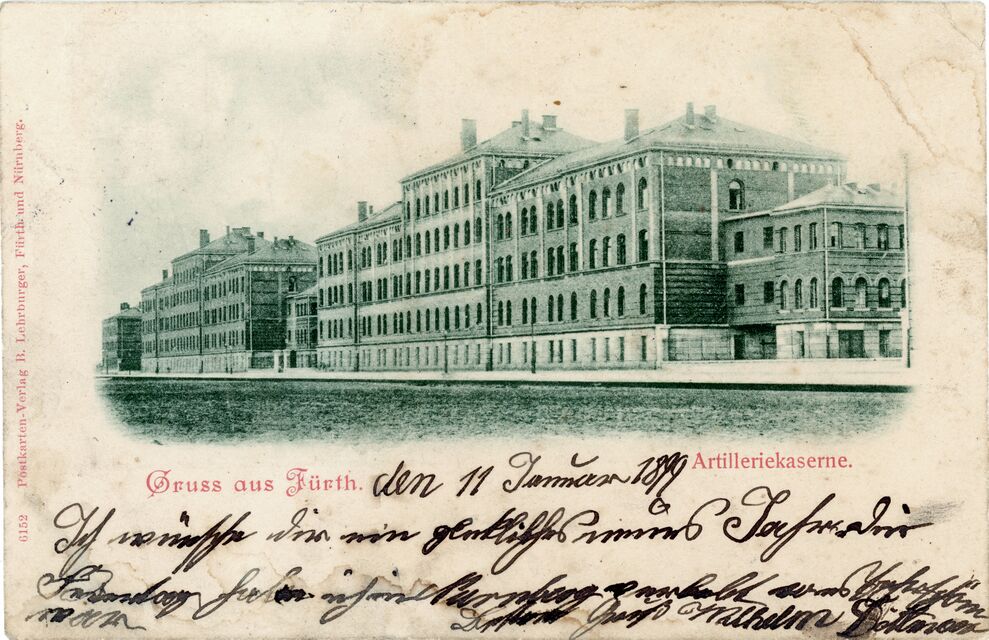 6152 Postkarten-Verlag B. Lehrburger, Fürth und Nürnberg.
Gruss aus Fürth. den 11 Januar 1899 Artilleriekaserne.
Ich wünsche dir ein neues Jahr. die
habe ich in verlebt
war Gruß Wilhelm